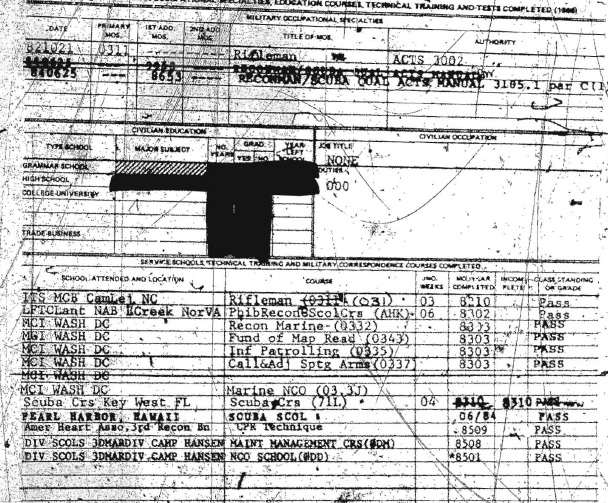 SPECIALTIES, EDUCATION COURSES, TECHNICAL TRAINING AND TESTS COMPLETED
MILITARY OCCUPATIONAL SPECIALTIES
DATE PRIMARY MOS. 1ST ADD. MOS. 2ND ADD. MOS. TITLE OF MOS. AUTHORITY
821021 0311 ---- Rifleman ACTS 3002
840625 ---- 8653 ---- RECONMAN/SCUBA QUAL ACTS MANUAL 3105.1 par C(1)
CIVILIAN EDUCATION CIVILIAN OCCUPATION
TYPE SCHOOL MAJOR SUBJECT NO. YEARS GRAD. YES NO YEAR LEFT SCHOOL JOB TITLE
NONE
GRAMMAR SCHOOL DUTIES
HIGH SCHOOL 000
COLLEGE-UNIVERSITY
TRADE-BUSINESS
SERVICE SCHOOLS, TECHNICAL TRAINING AND MILITARY CORRESPONDENCE COURSES COMPLETED
SCHOOL ATTENDED AND LOCATION COURSE NO. WEEKS MO./YEAR COMPLETED INCOMPLETE CLASS STANDING OR GRADE
ITS MCB CamLej NC Rifleman (031) 03 8210 Pass
LFTCLant NAB LCreek NorVA PhibReconScolCrs (AHK) 06 8302 Pass
MCI WASH DC Recon Marine (0332) 8303 PASS
MCI WASH DC Fund of Map Read (0343) 8303 PASS
MCI WASH DC Inf Patrolling (0335) 8303 PASS
MCI WASH DC Call&Adj Sptg Arms(0337) 8303 PASS
MCI WASH DC
MCI WASH DC Marine NCO (03.3J)
Scuba Crs Key West FL Scuba Crs (71L) 04 8310 8310 PASS
PEARL HARBOR, HAWAII SCUBA SCOL 06/84 PASS
Amer Heart Asso.3rd Recon Bn CPR Technique 8509 PASS
DIV SCOLS 3DMARDIV CAMP HANSEN MAINT MANAGEMENT CRS(@DM) 8508 PASS
DIV SCOLS 3DMARDIV CAMP HANSEN NCO SCHOOL(@DD) *8501 PASS